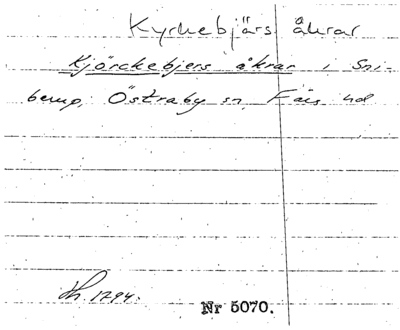 Kyrkebjärs åkrar
Kjörckebjers åkrar i Sni-
berup, Östraby sn, Färs hd
Lh. 1794.
Nr 5070.